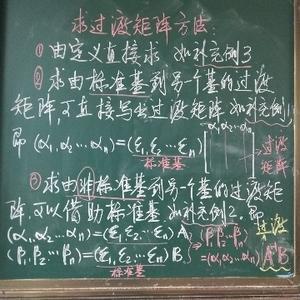 求过渡矩阵方法:
① 由定义直接求 如补充例3
② 求由标准基到另一个基的过渡
矩阵,可直接写出过渡矩阵 如补充例1
即 (α₁ α₂ … αₙ) = (ε₁ ε₂ … εₙ) [α₁ α₂ … αₙ] 过渡矩阵
标准基
③ 求由非标准基到另一个基的过渡矩
阵,可以借助标准基.如补充例2.即
(α₁,α₂ … αₙ) = (ε₁ ε₂ … εₙ) A
(β₁ β₂ … βₙ) = (ε₁ ε₂ … εₙ) B
标准基
⇒ (β₁ β₂ … βₙ)
= (α₁ α₂ … αₙ) A⁻¹B
过渡